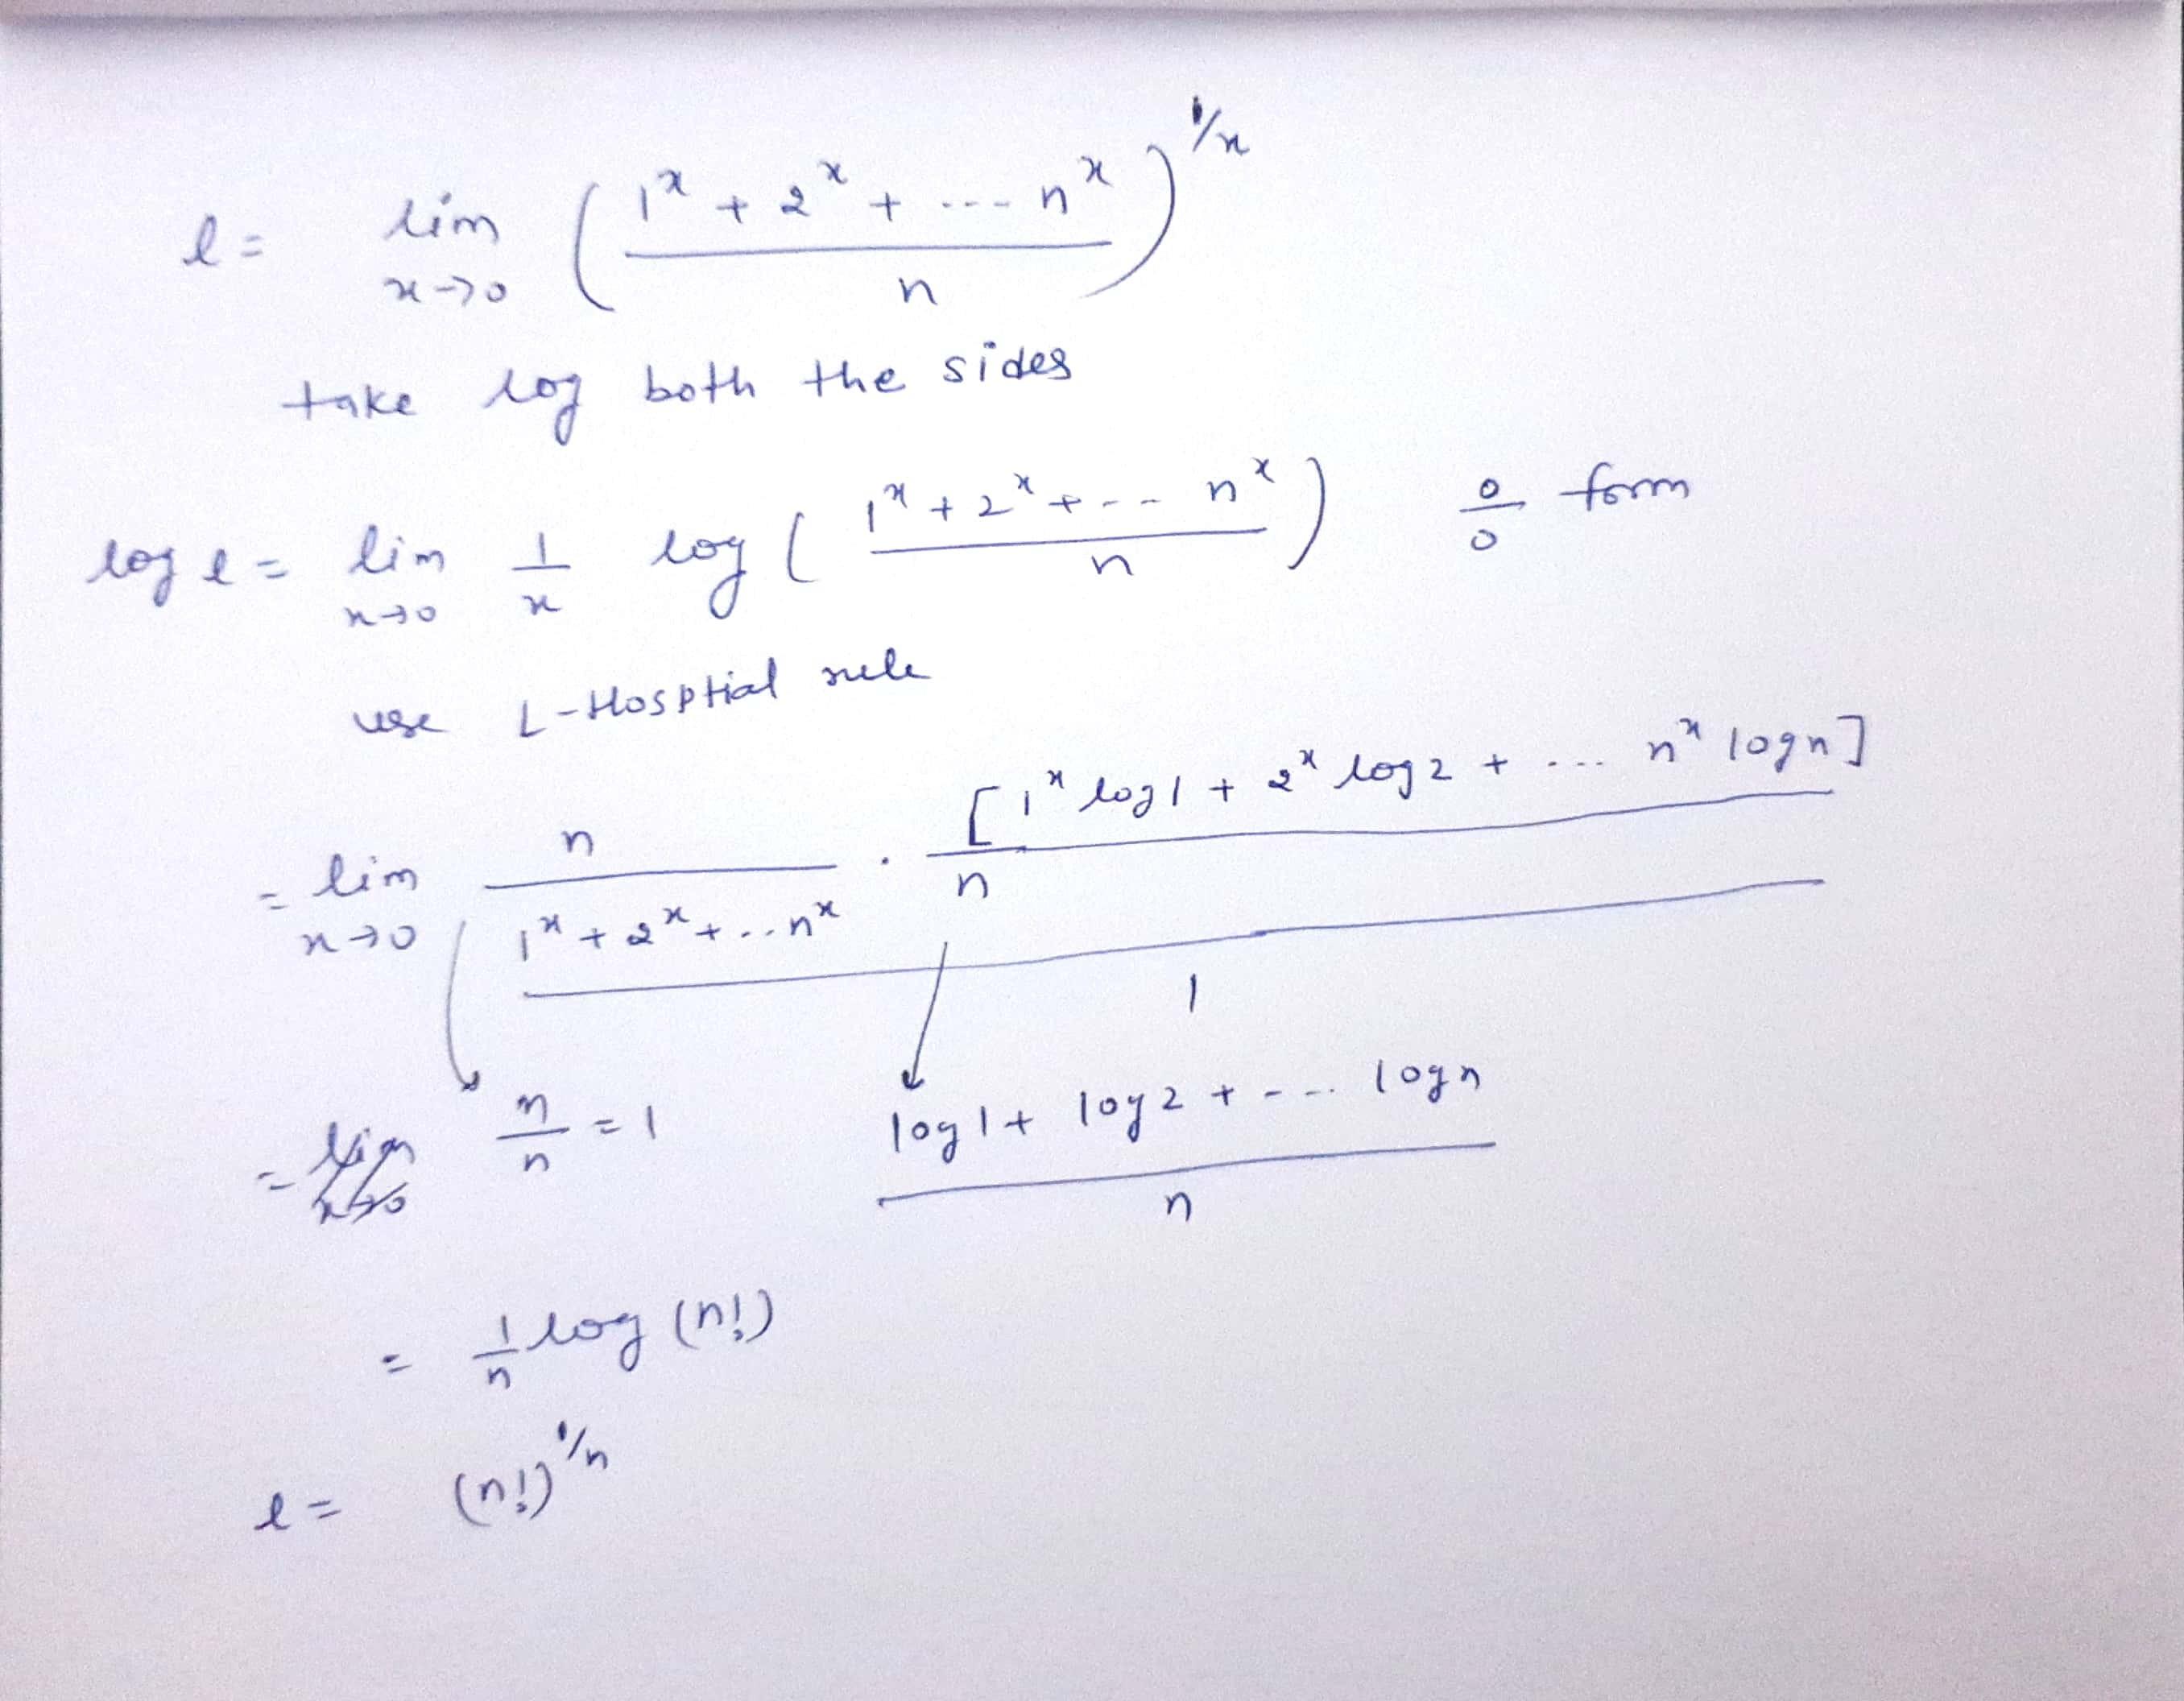 l = lim x→0 ( (1^x + 2^x + ---- n^x) / n )^(1/x)
take log both the sides
log l = lim x→0 1/x log ( (1^x + 2^x + --- n^x) / n ) 0/0 form
use L-Hosptial rule
= lim x→0 ( n / (1^x + 2^x + .. n^x) · [1^x log1 + 2^x log2 + ... n^x logn] / n ) / 1
= n/n = 1 (log1 + log2 + ---- logn) / n
= 1/n log (n!)
l = (n!)^(1/n)